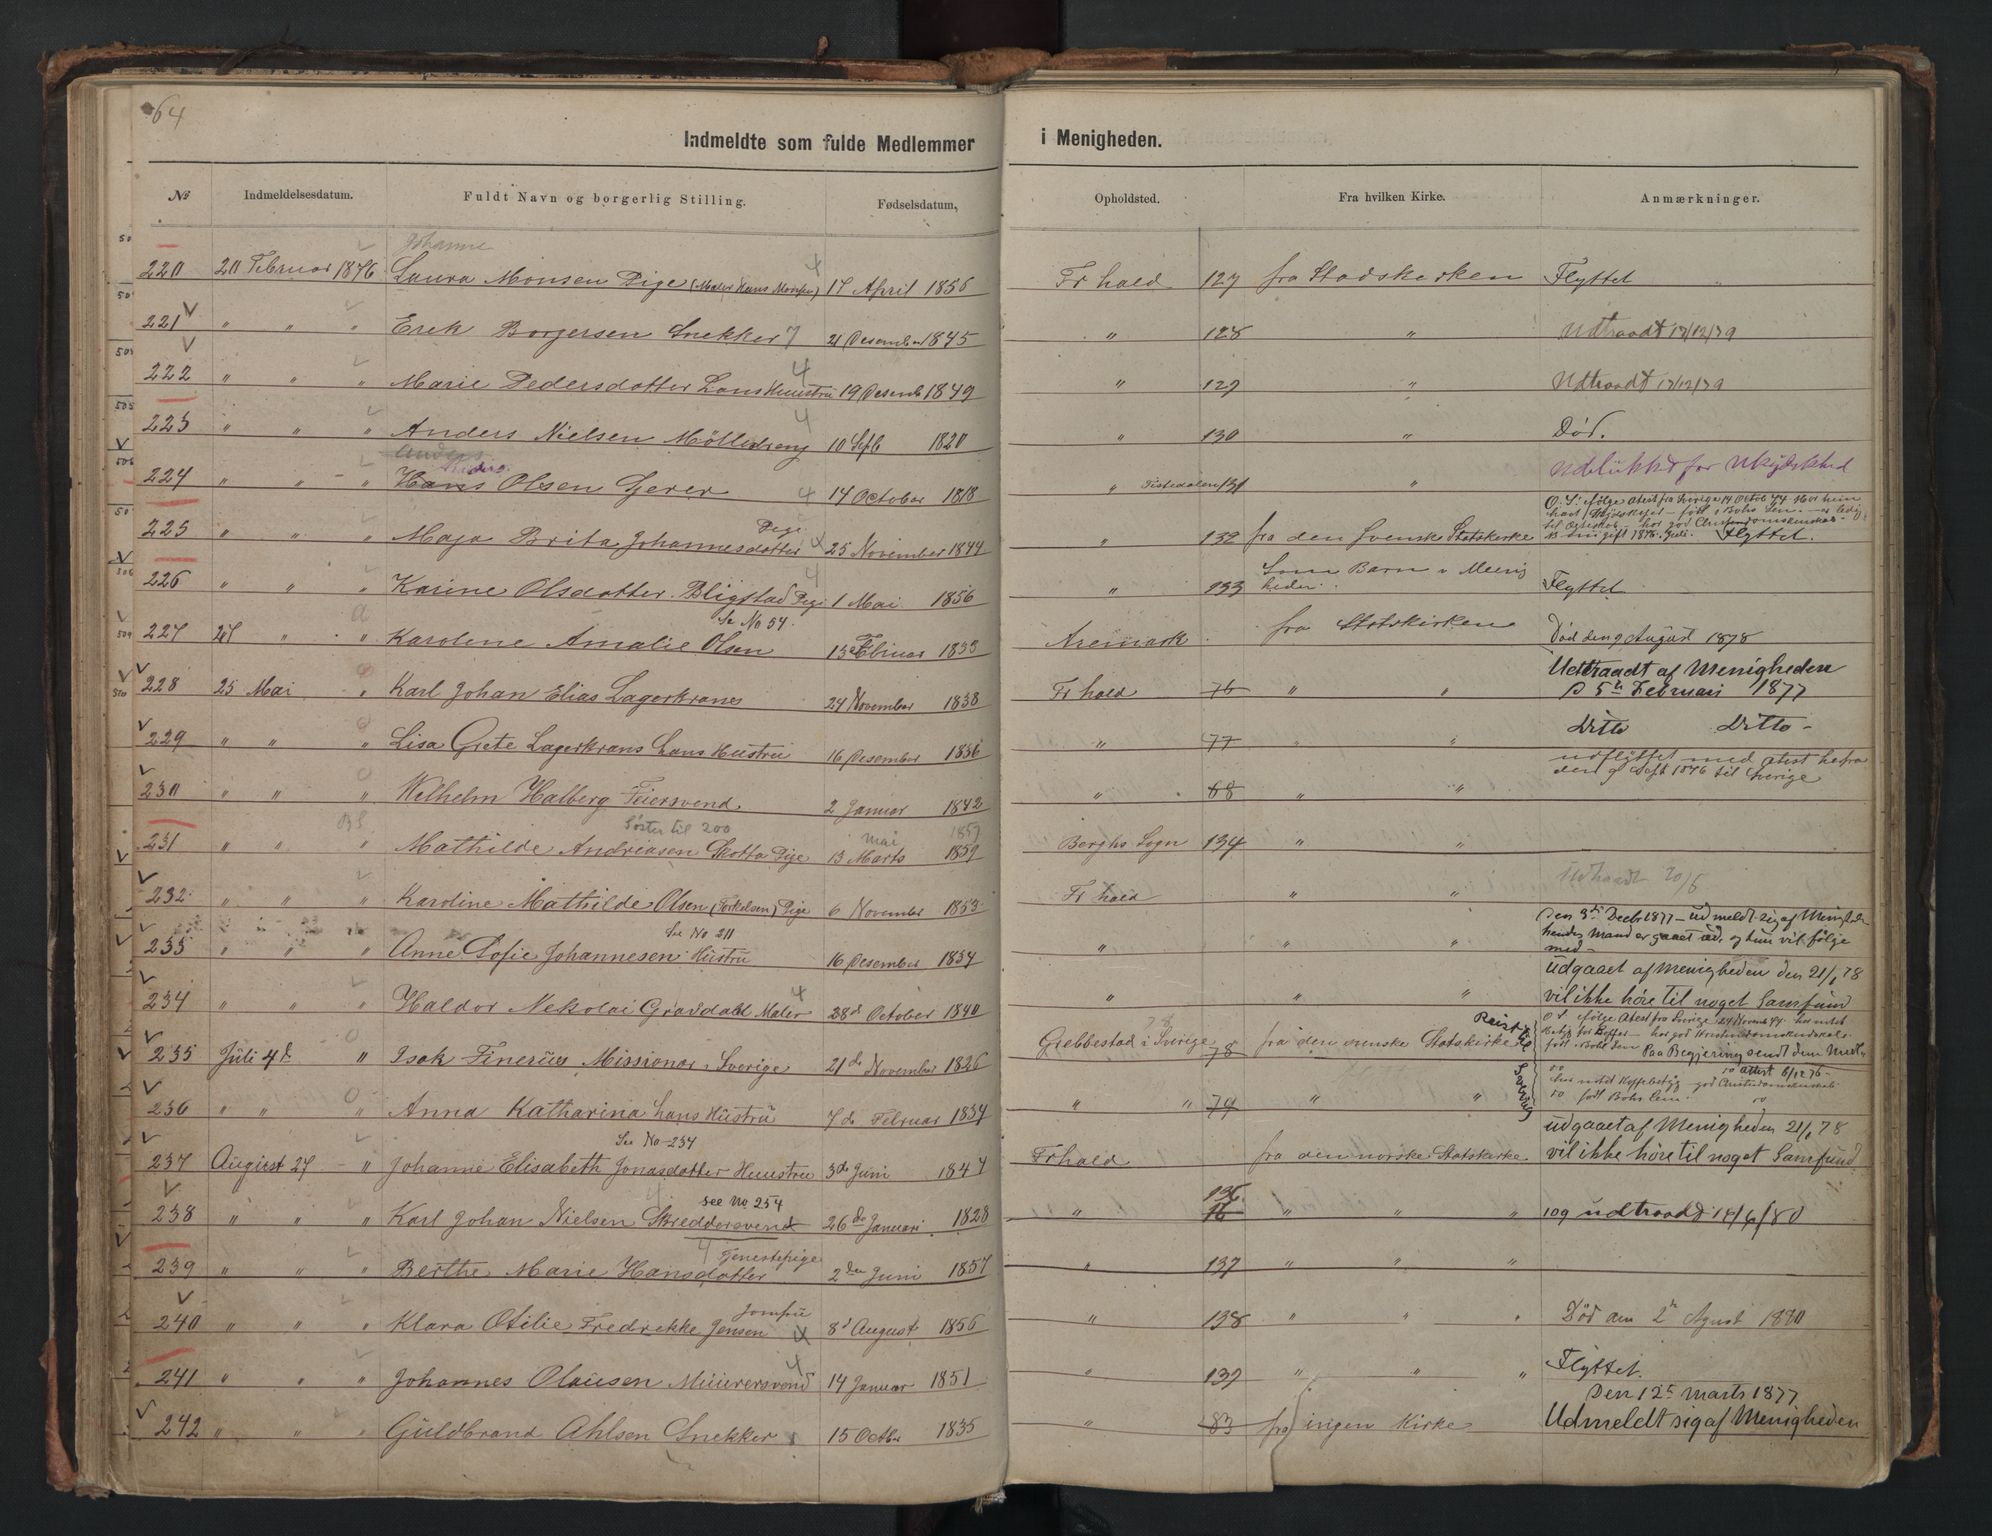 64
Indmeldte som fulde Medlemmer i Menigheden.
No Indmeldelsesdatum. Fuldt Navn og borgerlig Stilling. Fødselsdatum, Opholdsted. Fra hvilken Kirke. Anmærkninger.
Johanne
220 20 Februar 1876 Laura Monsen Pige (Maler Hans Monsen) 17 April 1856 Fr hald 127 fra Statskirken Flyttet
221 " " " Erek Borgersen Snekker 21 Desember 1845 " 128 " Udtraadt 17/12/79
222 " " " Marie Pedersdatter hans Huustru 19 Desemb 1849 " 129 " Udtraadt 17/12/79
223 " " " Anders Nielsen Mølledreng 10 Sept 1820 " 130 " Død.
Anders
224 " " " Hans Olsen 14 October 1818 " Tistedalen 131 " Udelukket for Ukydskhed
225 " " " Maja Brita Johannesdotter Pige 25 November 1844 " 132 fra den svenske Statskirke Flyttet.
226 " " " Karine Olsdotter Bligstad Pige 1 Mai 1856 " 133 Som Barn i Menigheden Flyttet
Se No 54.
227 27 " " Karoline Amalie Olsen 13 Februar 1833 Aremark fra Statskirken Død den 9 August 1878
228 25 Mai " Karl Johan Elias Lagerkrans 24 November 1838 Fr hald 76 " " Udtraadt af Menigheden
d 5te Februari 1877
229 " " " Lisa Grete Lagerkrans hans Hustru 16 Desember 1836 " 77 " " Ditto Ditto
230 " " " Welhelm Halberg Feiersvend 2 Januar 1842 " 68 " " udflyttet med atest herfra
den 9 Sept 1876 til Sverige
Søster til 200 Mai 1857
231 " " " Mathilde Andreasen Skotta Pige 13 Marts 1859 Berghs Sogn 134 " "
232 " " " Karoline Mathilde Olsen (Torkelsen) Pige 6 November 1853 Fr hald " " Udtraadt 20/5
See No 211
233 " " " Anne Sofie Johannesen Hustru 16 Desember 1834 " " " Den 3die Decbr 1877 - udmeldt sig af Menigh
hendes Mand er gaaet ud, og hun vil følge
med -
234 " " " Haldor Nekolai Gravdahl Maler 28de October 1840 " " " udgaaet af Menigheden den 21/1 78
vil ikke høre til noget Samfund
235 Juli 4de " Isak Finerus Missionar i Sverige 21de November 1826 Grebbestad i Sverige 78 fra den svenske Statskirke
Paa Begjering sendt dem
atest 6/12 76
236 " " " Anna Katharina hans Hustru 7de Februar 1834 " " 79 " "
See No 234
237 August 27 " Johanne Elisabeth Jonasdotter Huustru 3de Juni 1847 Frhald fra den norske Statskirke udgaaet af Menigheden 21/1 78
vil ikke høre til noget Samfund
see No 254
238 " " " Karl Johan Nielsen Skreddersvend 26de Januari 1828 " 136 " " " 109 udtraadt 14/6/80
239 " " " Berthe Marie Hansdotter Tjenestepige 2den Juni 1857 " 137 " " "
240 " " " Klara Otilie Fredrekke Jensen Jomfru 8d August 1856 " 138 " " " Død den 2n Agust 1880
241 " " " Johannes Olausen Muurersvend 14 Januar 1851 " 139 " " " Flyttet.
242 " " " Guldbrand Ahlsen Snekker 15 Octbr 1835 " 83 fra ingen Kirke Den 12te Marts 1877
Udmeldt sig af Menigheden